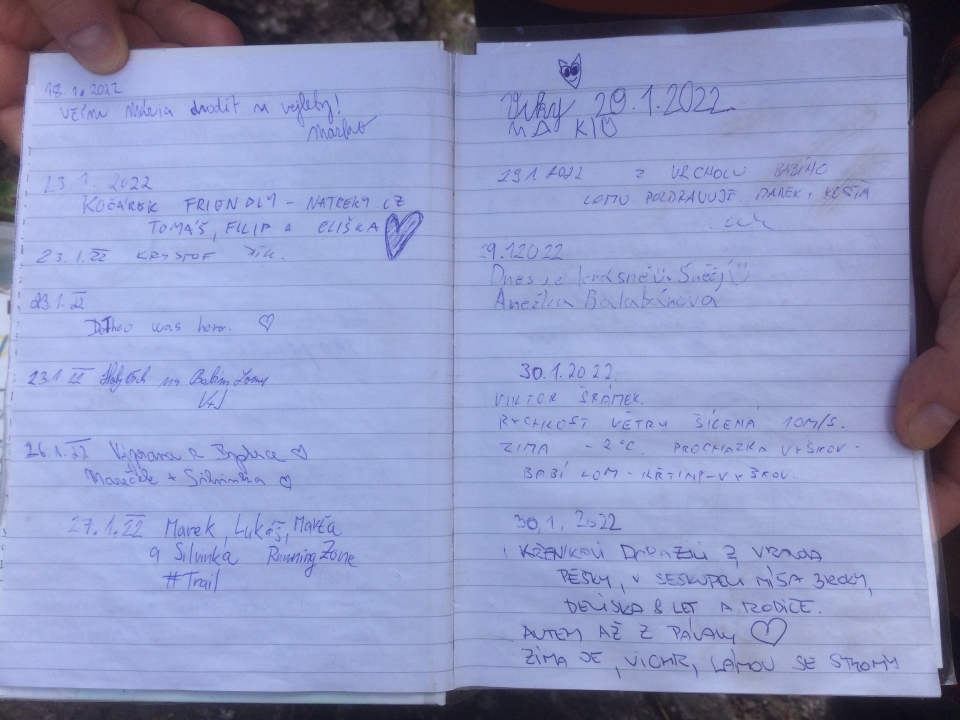 18.1.2022
23.1.2022
KOČÁREK FRIENDLY - NATREKY CZ
TOMÁŠ, FILIP a ELIŠKA
23.1.22 KRYSTOF
23.1.22
Theo was here.
23.1.22 na Babím Lomu
26.1.22 Výprava
Mareček + Silvinka
27.1.22 Marek, Lukáš,
a Silvinka Running Zone
#Trail
Viky 29.1.2022
29.1.2022 Z VRCHOLU BABÍHO
LOMU POZDRAVUJE DAREK,
29.1.2022
Dnes je krásně Sněží
Anežka Balabánova
30.1.2022
VIKTOR ŠRÁMEK.
RYCHLOST VĚTRU ŠÍLENÁ 10M/S.
ZIMA -2°C. PROCHÁZKA VYŠKOV -
BABÍ LOM - KŘTINY - VYŠKOV.
30.1.2022
KŘENKOVI DORAZILI Z
PĚŠKY, V SESKUPENÍ MÍŠA 3ROKY,
DENISKA 8 LET A RODIČE.
AUTEM AŽ Z PÁLAVY
ZIMA JE, VICHR, LÁMOU SE STROMY